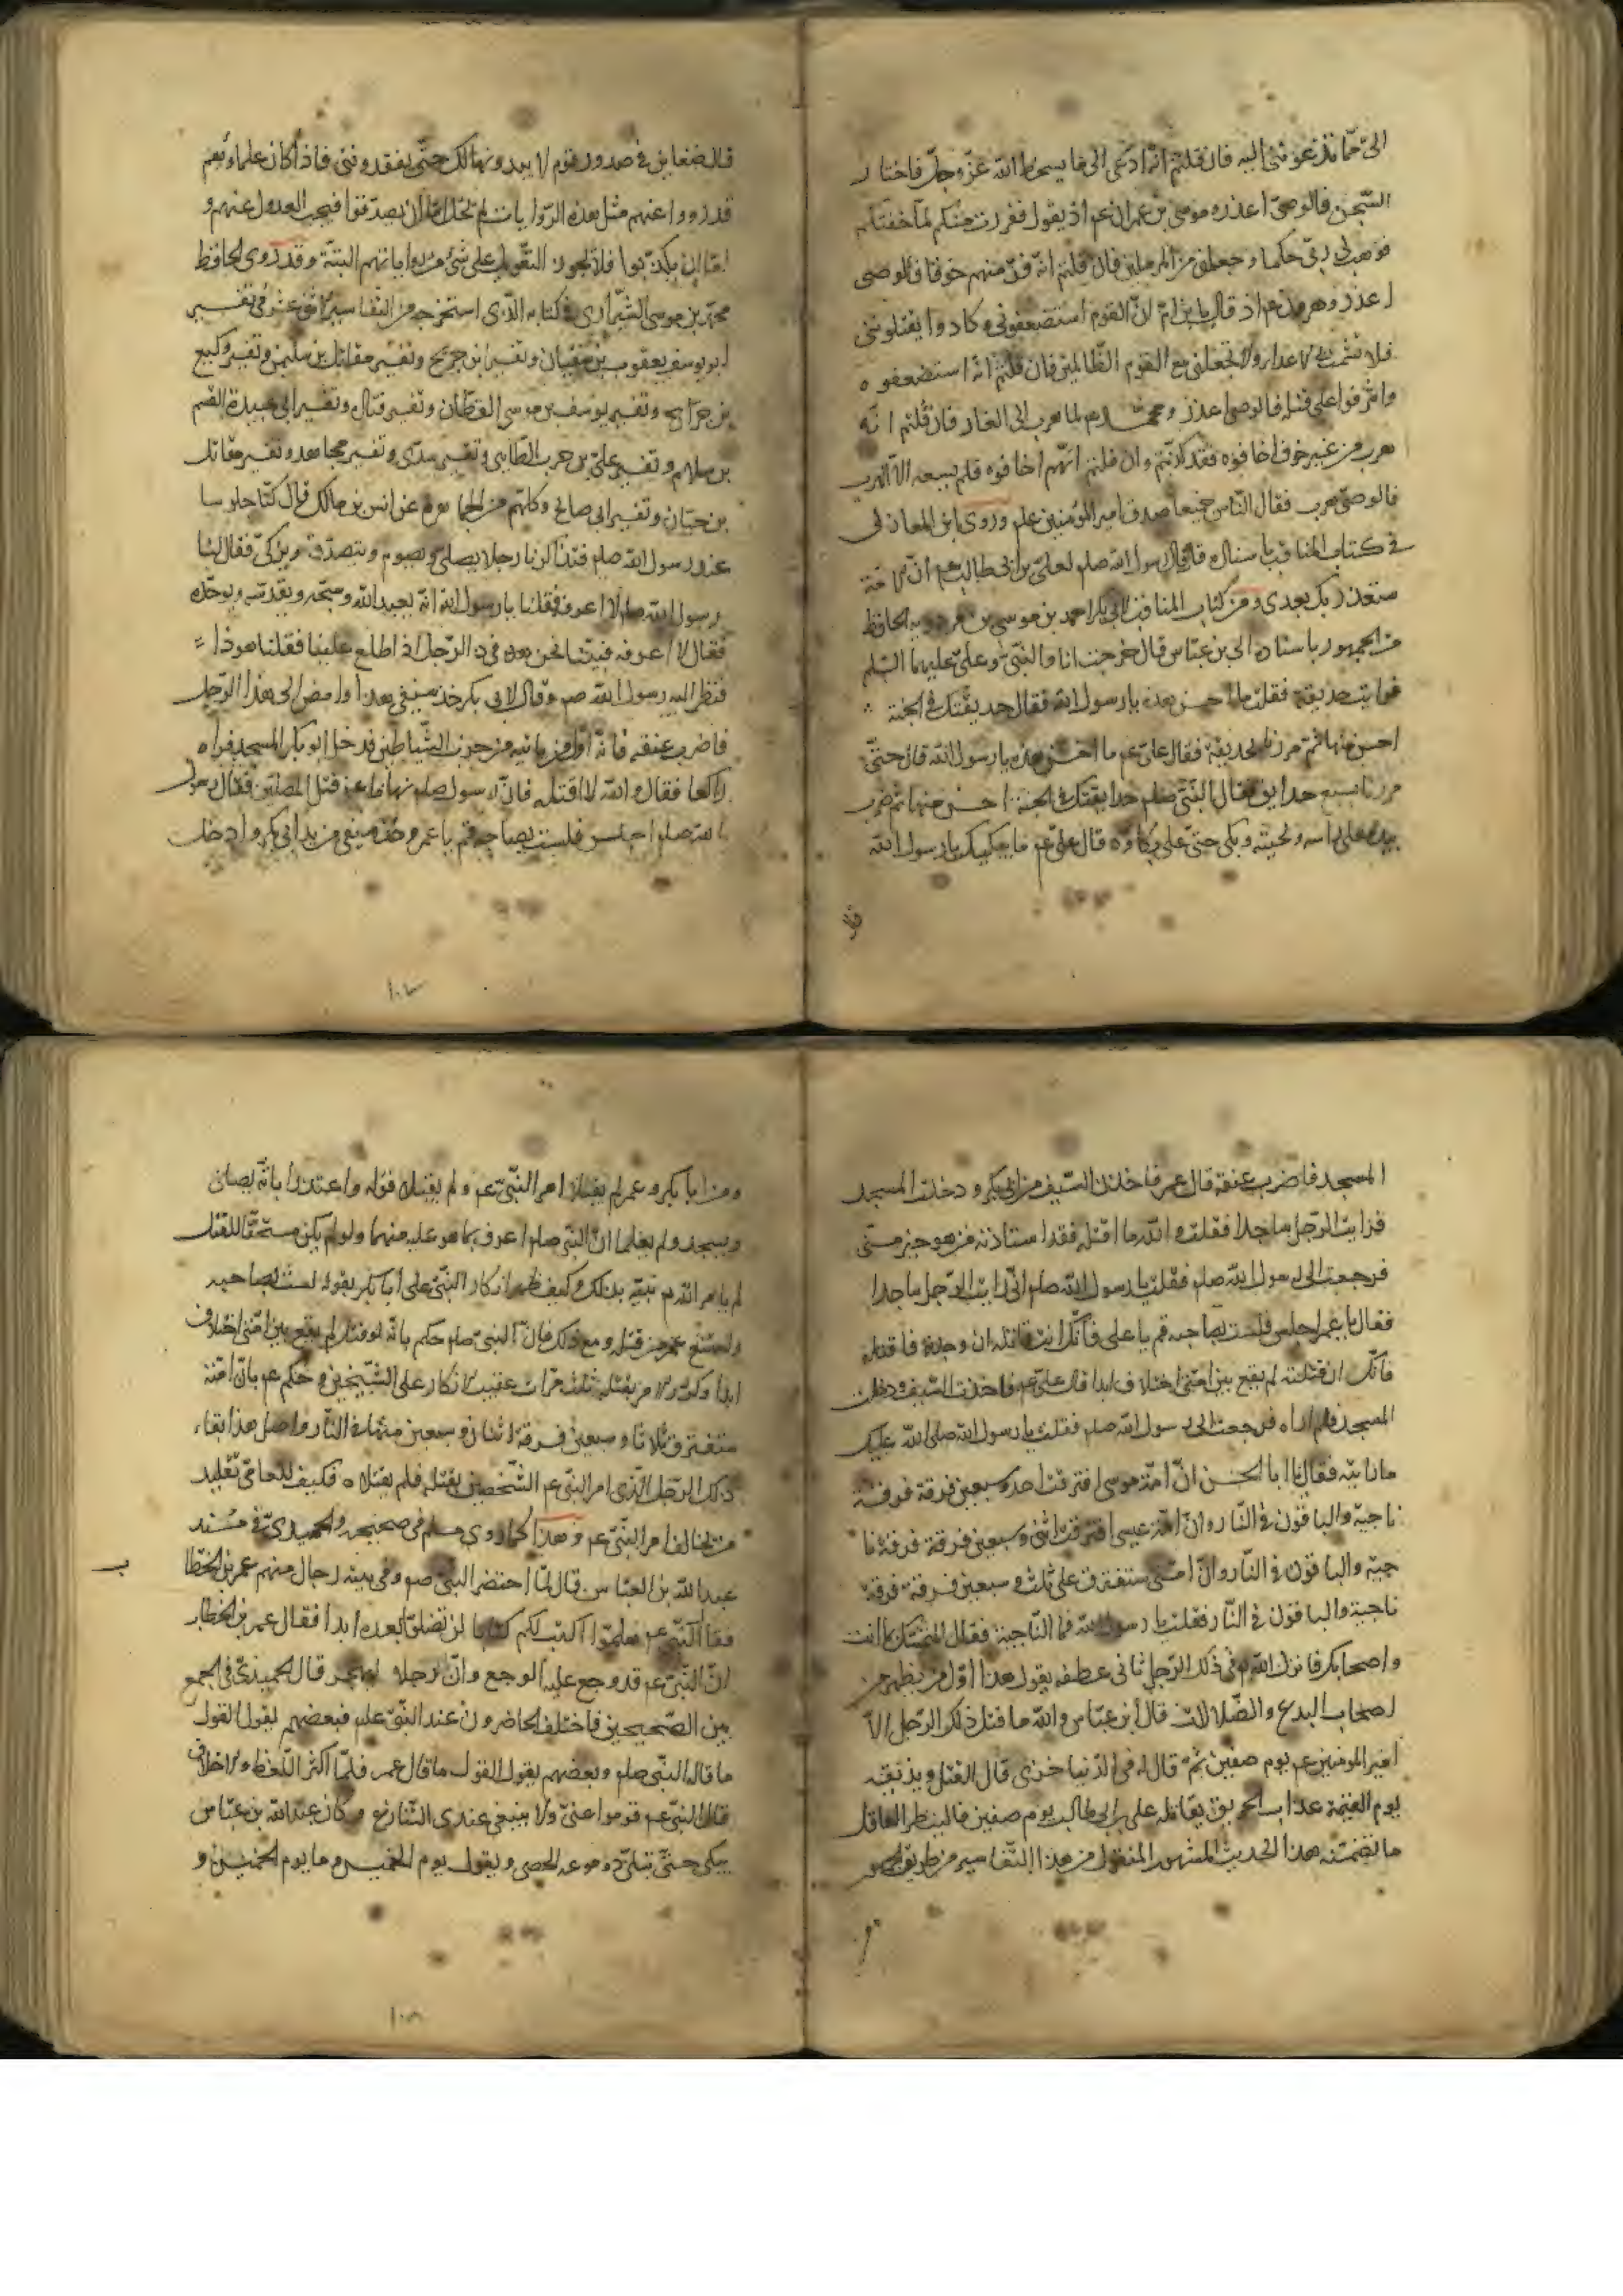 الىّ مما تدعوننى اليه فان قلتم انه ادعى الى ما يسخط الله عزّ وجلّ فاختار
السّجن فالوصىّ اعذر وموسى بن عمران عم اذ يقول ففررت منكم لما خفتكم
فوهب لى ربى حكما وجعلنى من المرسلين فان قلتم انه فرّ منهم خوفا فالوصى
اعذر وهرون عم اذ قال يابن امّ انّ القوم استضعفونى وكادوا يقتلوننى
فلا تشمت بى الاعداء ولا تجعلنى مع القوم الظالمين فان قلتم انه استضعفوه
واشرفوا على قتله فالوصى اعذر ومحمد عم لما هرب الى الغار فان قلتم انّه
هرب من غير خوف اخافوه فقد كذبتم وان قلتم انهم اخافوه فلم يسعه الّا الهرب
فالوصىّ هرب فقال النّاس جميعا صدق امير المؤمنين علم وروى ابن المغازلى
فى كتاب المناقب باسناده قال قال رسول الله صلم لعلى بن ابى طالب عم انّ الامّة
ستغدر بك بعدى ومن كتاب المناقب لابى بكر احمد بن موسى بن مردويه الحافظ
من الجمهور باسناده الى بن عبّاس قال خرجت انا والنّبىّ وعلىّ عليهما السّلم
فرايت حديقة فقلت ما احسن هذه يا رسول الله فقال حديقتك فى الجنة
احسن منها ثمّ مررنا بحديقة فقال علىّ عم ما احسن هذه يا رسول الله قال حتّى
مررنا بسبع حدايق فقال النّبىّ صلم حدايقك فى الجنة احسن منها ثم ضرب
بيده على راسه ولحيته وبكى حتىّ على بكاؤه قال علىّ عم ما يبكيك يا رسول الله
قال
قال ضغاين فى صدور قوم لا يبدونها لك حتّى يفقدوننى فاذا كان علماؤهم
قد رووا عنهم مثل هذه الرّوايات لم تخل امّا ان يصدقوا فيجب العدول عنهم و
امّا ان يكذبوا فلا يجوز التّعويل على شىء من رواياتهم البتّة وقد روى الحافظ
محمّد بن موسى الشّيرازى فى كتابه الّذى استخرجه من التّفاسير الاثنى عشر تفسير
ابو يوسف يعقوب بن سفيان وتفسير ابن جريح وتفسير مقاتل بن سليمن وتفسير وكيع
بن جرّاح وتفسير يوسف بن موسى القطّان وتفسير قتاده وتفسير ابى عبيدة القسم
بن سلام وتفسير علىّ بن حرب الطّايى وتفسير سدّى وتفسير مجاهد وتفسير مقاتل
بن حيّان وتفسير ابى صالح وكلهم من الجماهره عن انس بن مالك قال كنّا جلوسا
عند رسول الله صلم فتذاكرنا رجلا يصلى ويصوم ويتصدّق ويزكىّ فقال لنا
رسول الله صلم لا اعرفه فقلنا يا رسول الله انّه يعبد الله ويسبّحه ويقدّسه ويوحّده
فقال لا اعرفه فبينا نحن فى ذكر الرّجل اذ اطلع علينا فقلنا هو ذا
فنظر اليه رسول الله صم وقال لابى بكر خذ سيفى هذا وامض الى هذا الرّجل
فاضرب عنقه فانّه اوّل من ياتيه من حزب الشّياطين فدخل ابو بكر المسجد فراه
راكعا فقال والله لا اقتله فانّ رسول صلم نهانا عن قتل المصلّين فقال رسول
الله صلم اجلس فلست بصاحبه قم يا عمر وخذ سيفى من يد ابى بكر وادخل
المسجد فاضرب عنقه قال عمر فاخذت السّيف من ابى بكر ودخلت المسجد
فرايت الرّجل ساجدا فقلت والله ما اقتله فقد استاذنه من هو خير منّى
فرجعت الى رسول الله صلم فقلت يا رسول الله صلم انّى رايت الرّجل ساجدا
فقال يا عمر اجلس فلست بصاحبه قم يا على فانّك انت قاتله ان وجدته فاقتله
فانّك ان قتلته لم يقع بين امتى اختلاف ابدا قال علىّ عم فاخذت السّيف ودخلت
المسجد فلم اراه فرجعت الى رسول الله صلم فقلت يا رسول الله صلى الله عليك
ما رايته فقال يا ابا الحسن انّ امّة موسى افترقت احد وسبعين فرقة فرقة
ناجية والباقون فى النّار وانّ امّة عيسى افترقت اثنى وسبعين فرقة فرقة نا
جية والباقون فى النّار وانّ امتى ستفترق على ثلث وسبعين فرقة فرقة
ناجية والباقون فى النّار فقلت يا رسول الله فما النّاجية فقال المتمسّك بما انت
واصحابك فانزل الله تع فى ذلك الرّجل ثانى عطفه يقول هذا اوّل من يظهر من
اصحاب البدع والضّلالات قال ابن عبّاس والله ما قتل ذلك الرّجل الّا
امير المومنين عم يوم صفين ثمّ قال له فى الدّنيا خزى قال القتل ويذيقه
يوم القيمة عذاب الحريق بقتاله على بن ابى طالب يوم صفين فالينظر العاقل
ما تضمّنه هذا الحديث المشهور المنقول من هذا التّفاسير من طريق الجمهور
ومن ابا بكر وعمر لم يقبلا امر النّبىّ عم ولم يقبلا قوله واعتذرا بانّه يصلى
ويسجد ولم يعلما انّ النّبىّ صلم اعرف بما هو عليه منهما ولو لم يكن مستحقّا للقتل
لم يامر الله نبيّه بذلك وكيف ظهر انكار النّبىّ على ابا بكر بقوله لست بصاحبه
وامتنع عمر من قتله ومع ذلك فانّ النبىّ صلم حكم بانّه لو قتل لم يقع بين امّتى اختلاف
ابدا وكرّر الامر بقتله ثلث مرّات عقيب الانكار على الشّيخين وحكم عم بانّ امّته
ستفترق ثلاثا وسبعين فرقة اثنان وسبعين منها فى النّار واصل هذا بقاء
ذلك الرّجل الّذى امر النّبى عم الشّخصين بقتله فلم يقتلاه فكيف للعامىّ تقليد
من يخالف امر النّبىّ عم وهذا كما روى مسلم فى صحيحه والحميدىّ فى مسند
عبد الله بن العبّاس قال لمّا احتضر النّبىّ صم وفى بيته رجال منهم عمر بن الخطا
ب
فقال النّبىّ عم هلمّوا اكتب لكم كتابا لن تضلّوا بعده ابدا فقال عمر بن الخطاب
انّ النّبىّ عم قد وجع عليه الوجع وانّ رجلا ليهجر قال الحميدىّ فى الجمع
بين الصّحيحين فاختلف الحاضرون عند النّبىّ علم فبعضهم يقول القول
ما قاله النّبى صلم وبعضهم يقول القول ما قال عمر فلمّا اكثر اللّغط والاختلاف
قال النّبىّ عم قوموا عنّى ولا ينبغى عندى التّنازع وكان عبد الله بن عبّاس
يبكى حتّى تبلّ دموعه الحصى ويقول يوم الخميس وما يوم الخميس و